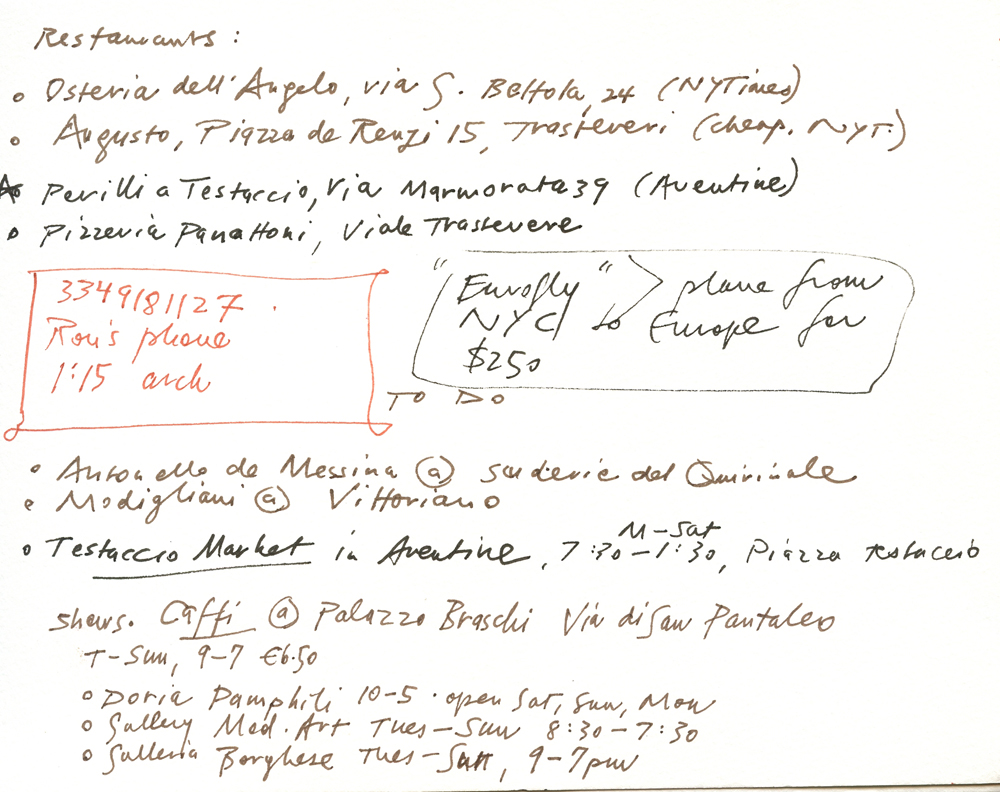 Restaurants:
Osteria dell'Angelo, via G. Bettola, 24 (NYTimes)
Augusto, Piazza de Renzi 15, Trasteveri (cheap. NYT.)
Perilli a Testaccio, Via Marmorata 39 (Aventine)
Pizzeria Panattoni, Viale Trastevere
3349181127.
Ron's phone
1:15 arch
"Eurofly" > plane from
NYC to Europe for
$250
TO DO
Antonello de Messina @ scuderie del Quirinale
Modigliani @ Vittoriano
M-Sat
Testaccio Market in Aventine, 7:30-1:30, Piazza Testaccio
shows. Caffi @ Palazzo Braschi Via di San Pantaleo
T-Sun, 9-7 €6.50
Doria Pamphili 10-5 · open Sat, Sun, Mon
Gallery Mod. Art Tues-Sun 8:30-7:30
Galleria Borghese Tues-Sun, 9-7pm